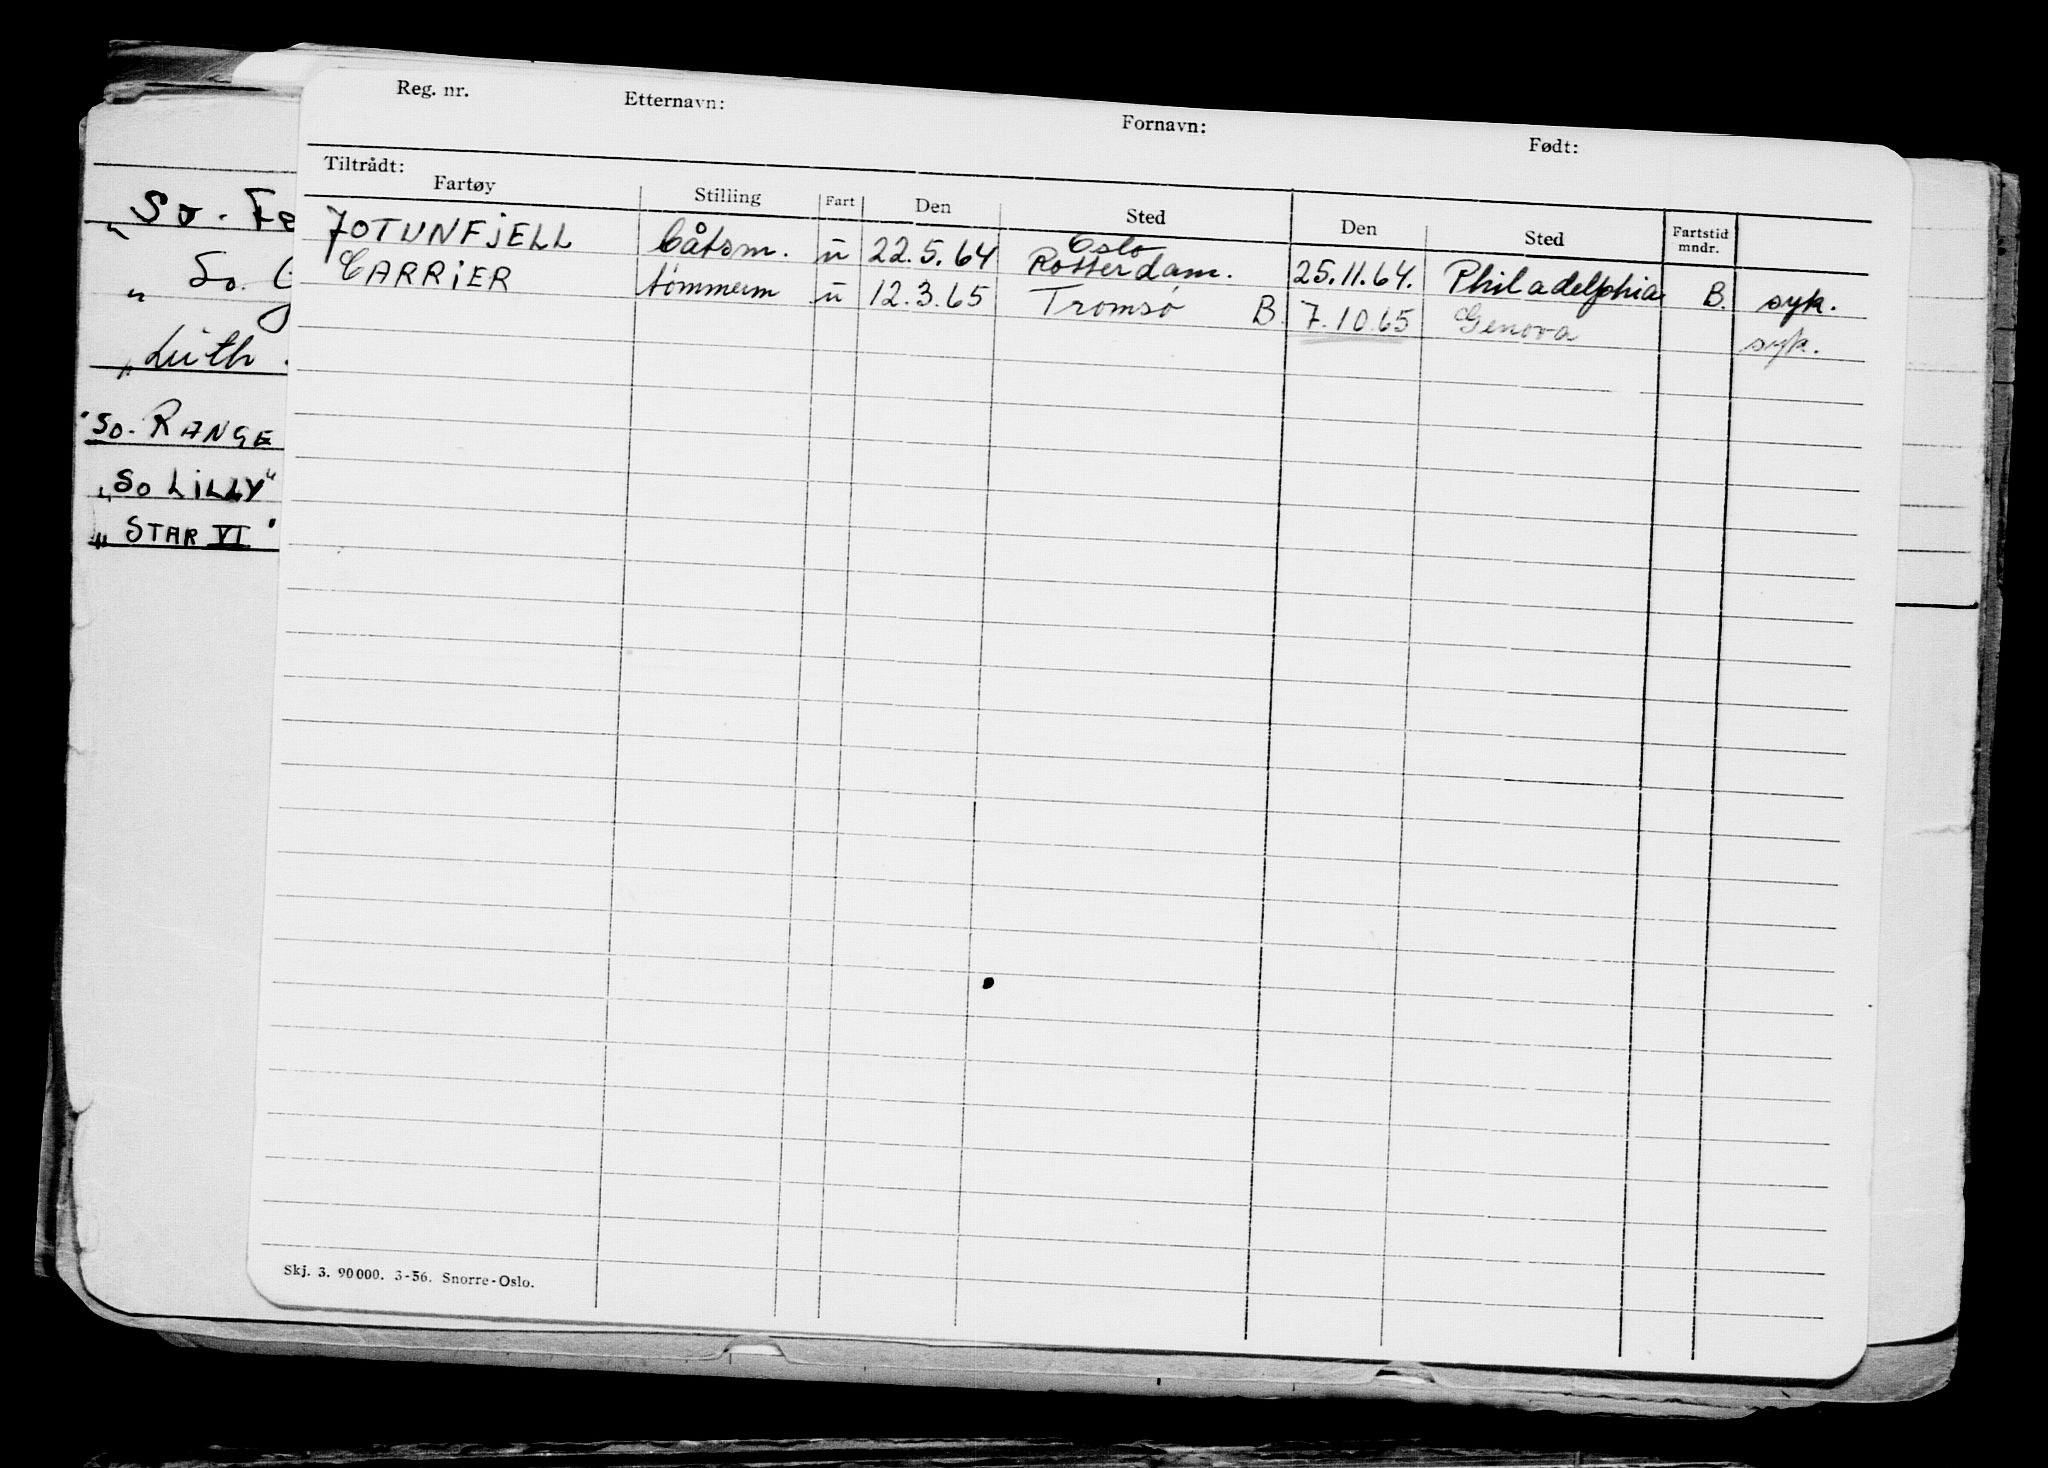 Reg. nr. Etternavn: Fornavn: Født:
Tiltrådt:
Fartøy Stilling Fart Den Sted Den Sted Fartstid mndr.
JOTUNFJELL båtsm. u 22.5.64 Oslo Rotterdam. 25.11.64. Philadelphia B. syk.
CARRIER tømmerm u 12.3.65 Tromsø B. 7.10.65 Genova syk.
So.
" So.
" Luth
"So. RANGE
"So LILLY"
"STAR VI"
Skj. 3. 90000. 3-56. Snorre-Oslo.